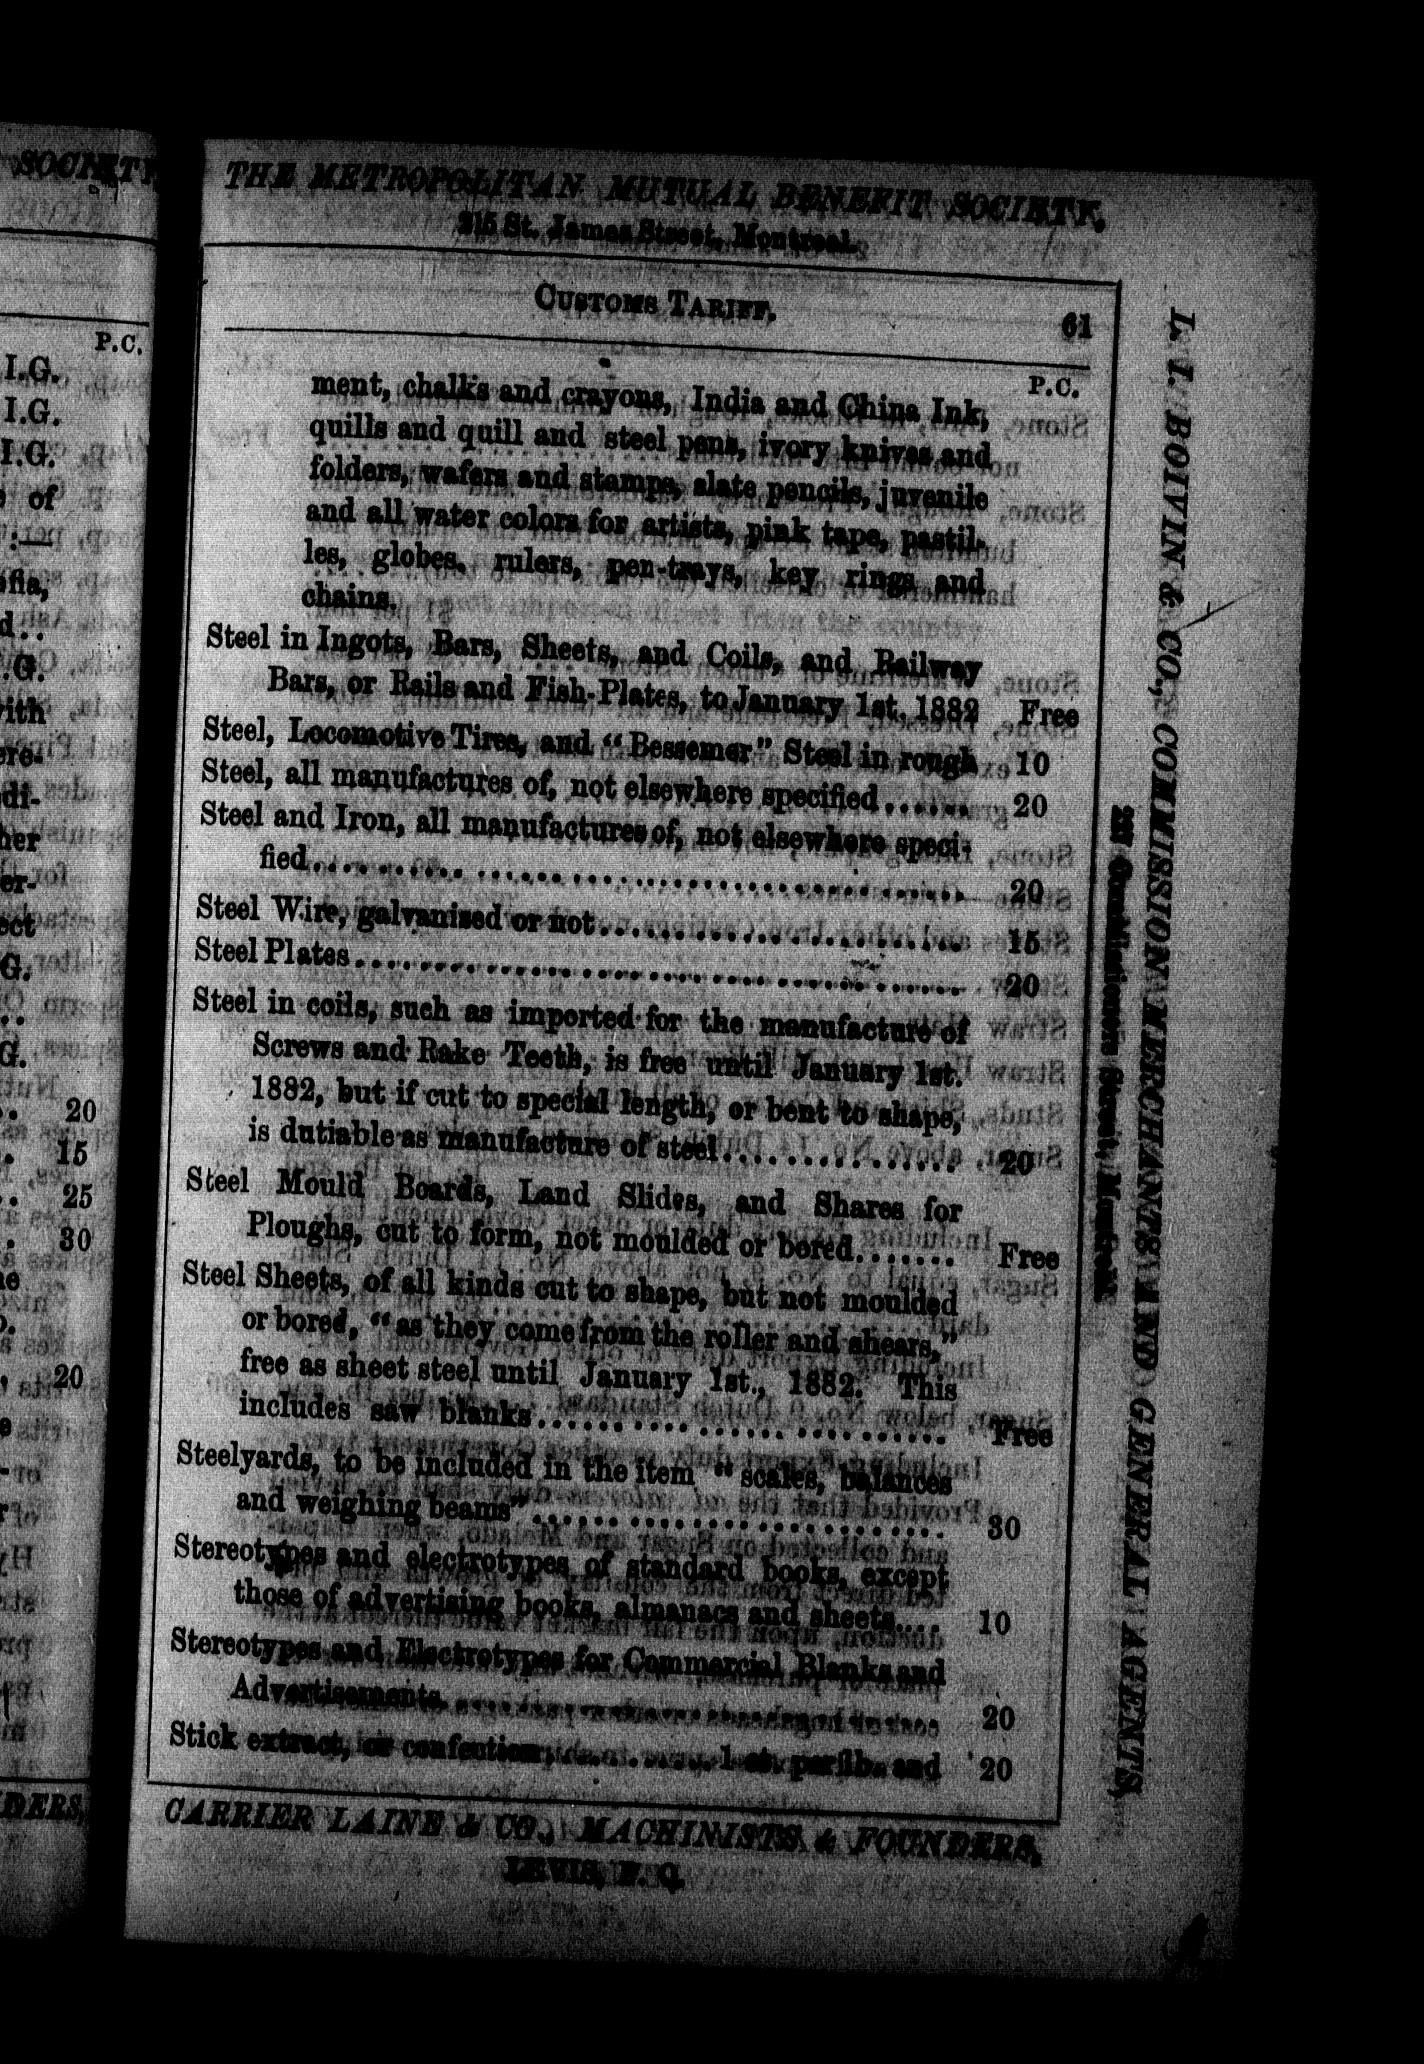 SOCIETY,
P.C.
I.G.
I.G.
I.G.
of
:—
d..
.G.
with
ere-
di-
her
er-
ect
G.
..
G.
.. 20
. 15
.. 25
. 30
20
THE METROPOLITAN MUTUAL BENEFIT SOCIETY,
215 St. James Street, Montreal.
CUSTOMS TARIFF. 61
P.C.
ment, chalks and crayons, India and China Ink,
quills and quill and steel pens, ivory knives and
folders, wafers and stamps, slate pencils, juvenile
and all water colors for artists, pink tape, pastil-
les, globes, rulers, pen-trays, key rings and
chains.
Steel in Ingots, Bars, Sheets, and Coils, and Railway
Bars, or Rails and Fish-Plates, to January 1st, 1882 Free
Steel, Locomotive Tires, and “Bessemer” Steel in rough 10
Steel, all manufactures of, not elsewhere specified...... 20
Steel and Iron, all manufactures of, not elsewhere speci-
fied........................................ 20
Steel Wire, galvanised or not........................ 15
Steel Plates........................................ 20
Steel in coils, such as imported for the manufacture of
Screws and Rake Teeth, is free until January 1st.
1882, but if cut to special length, or bent to shape,
is dutiable as manufacture of steel............... 20
Steel Mould Boards, Land Slides, and Shares for
Ploughs, cut to form, not moulded or bored....... Free
Steel Sheets, of all kinds cut to shape, but not moulded
or bored, “as they come from the roller and shears,”
free as sheet steel until January 1st., 1882. This
includes saw blanks........................... Free
Steelyards, to be included in the item “scales, balances
and weighing beams”............................ 30
Stereotypes and electrotypes of standard books, except
those of advertising books, almanacs and sheets.... 10
Stereotypes and Electrotypes for Commercial Blanks and
Advertisements................................ 20
Stick extract, or confection,..........1 ct. per lb. and 20
CARRIER LAINE & CO., MACHINISTS & FOUNDERS,
LEVIS, P. Q.
L. J. BOIVIN & CO., COMMISSION MERCHANTS AND GENERAL AGENTS,
Commissioners Street, Montreal.